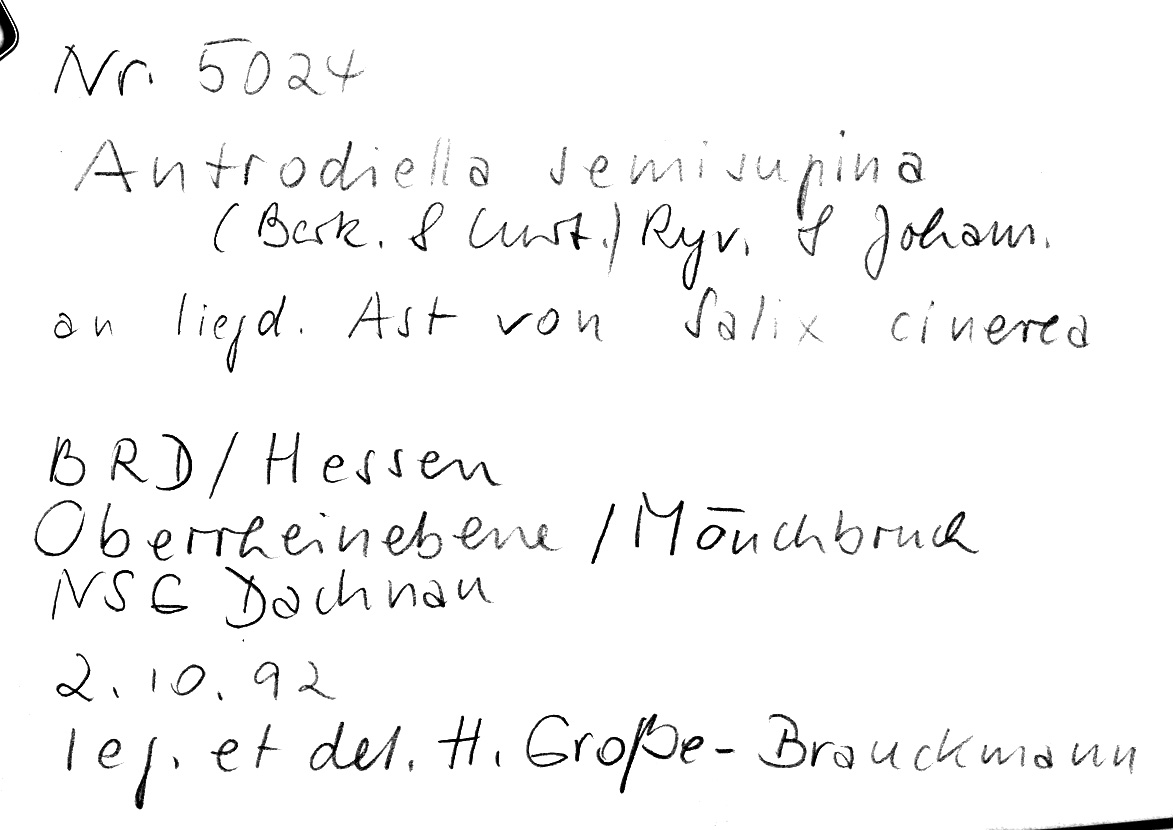 Nr. 5024
Antrodiella semisupina
(Berk. & Curt.) Ryv. & Joham.
an liegd. Ast von Salix cinerea
BRD/Hessen
Oberrheinebene/Mönchbruch
NSG Dachnau
2.10.92
leg. et det. H. Große-Brauckmann